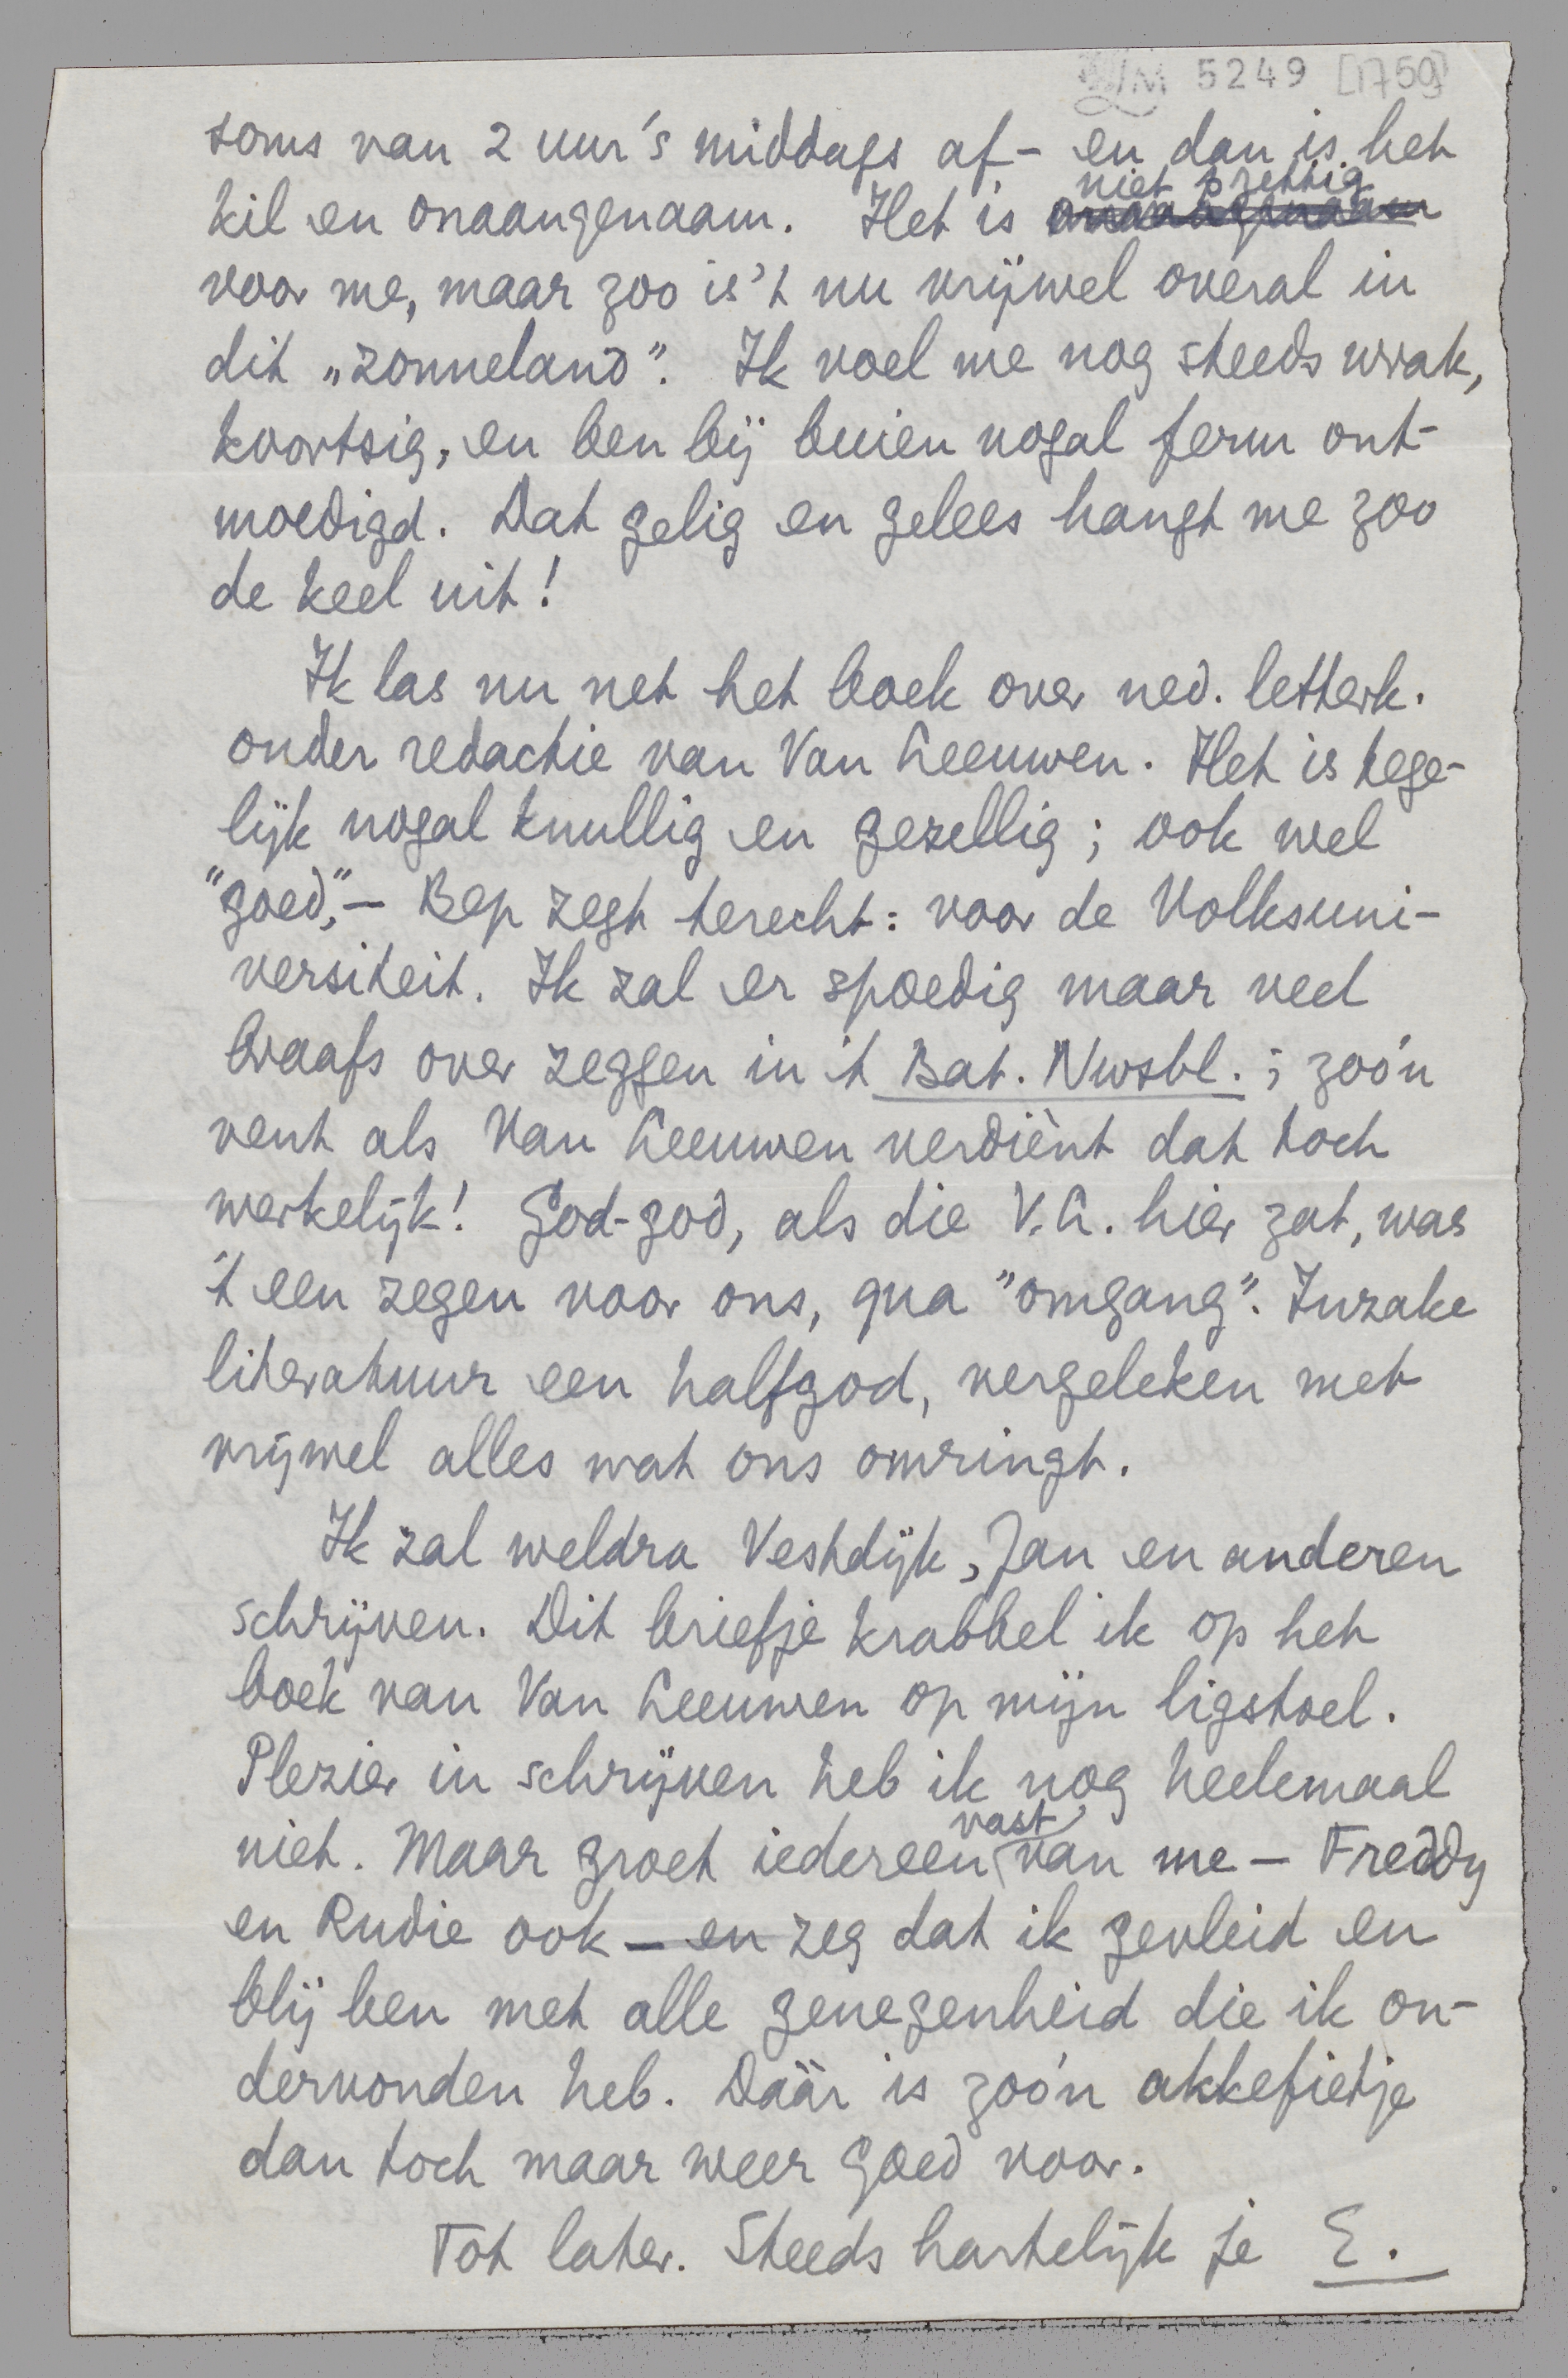 LM 5249 [1759]
soms van 2 uur 's middags af – en dan is het
niet prettig
kil en onaangenaam. Het is onaangenaam
voor me, maar zoo is 't nu vrijwel overal in
dit „zonneland”. Ik voel me nog steeds wrak,
koortsig, en ben bij buien nogal ferm ont-
moedigd. Dat gelig en gelees hangt me zoo
de keel uit!
Ik las nu net het boek over ned. letterk.
onder redactie van Van Leeuwen. Het is tege-
lijk nogal knullig en gezellig; ook wel
"goed", – Bep zegt terecht: voor de Volksuni-
versiteit. Ik zal er spoedig maar veel
braafs over zeggen in 't Bat. Nwsbl.; zoo'n
vent als Van Leeuwen verdiènt dat toch
werkelijk! God-god, als die V.L. hier zat, was
't een zegen voor ons, qua "omgang". Inzake
literatuur een halfgod, vergeleken met
vrijwel alles wat ons omringt.
Ik zal weldra Vestdijk, Jan en anderen
schrijven. Dit briefje krabbel ik op het
boek van Van Leeuwen op mijn ligstoel.
Plezier in schrijven heb ik nog heelemaal
vast
niet. Maar groet iedereen van me – Freddy
en Rudie ook – en zeg dat ik gevleid en
blij ben met alle genegenheid die ik on-
dervonden heb. Dààr is zoo'n akkefietje
dan toch maar weer goed voor.
Tot later. Steeds hartelijk je E.